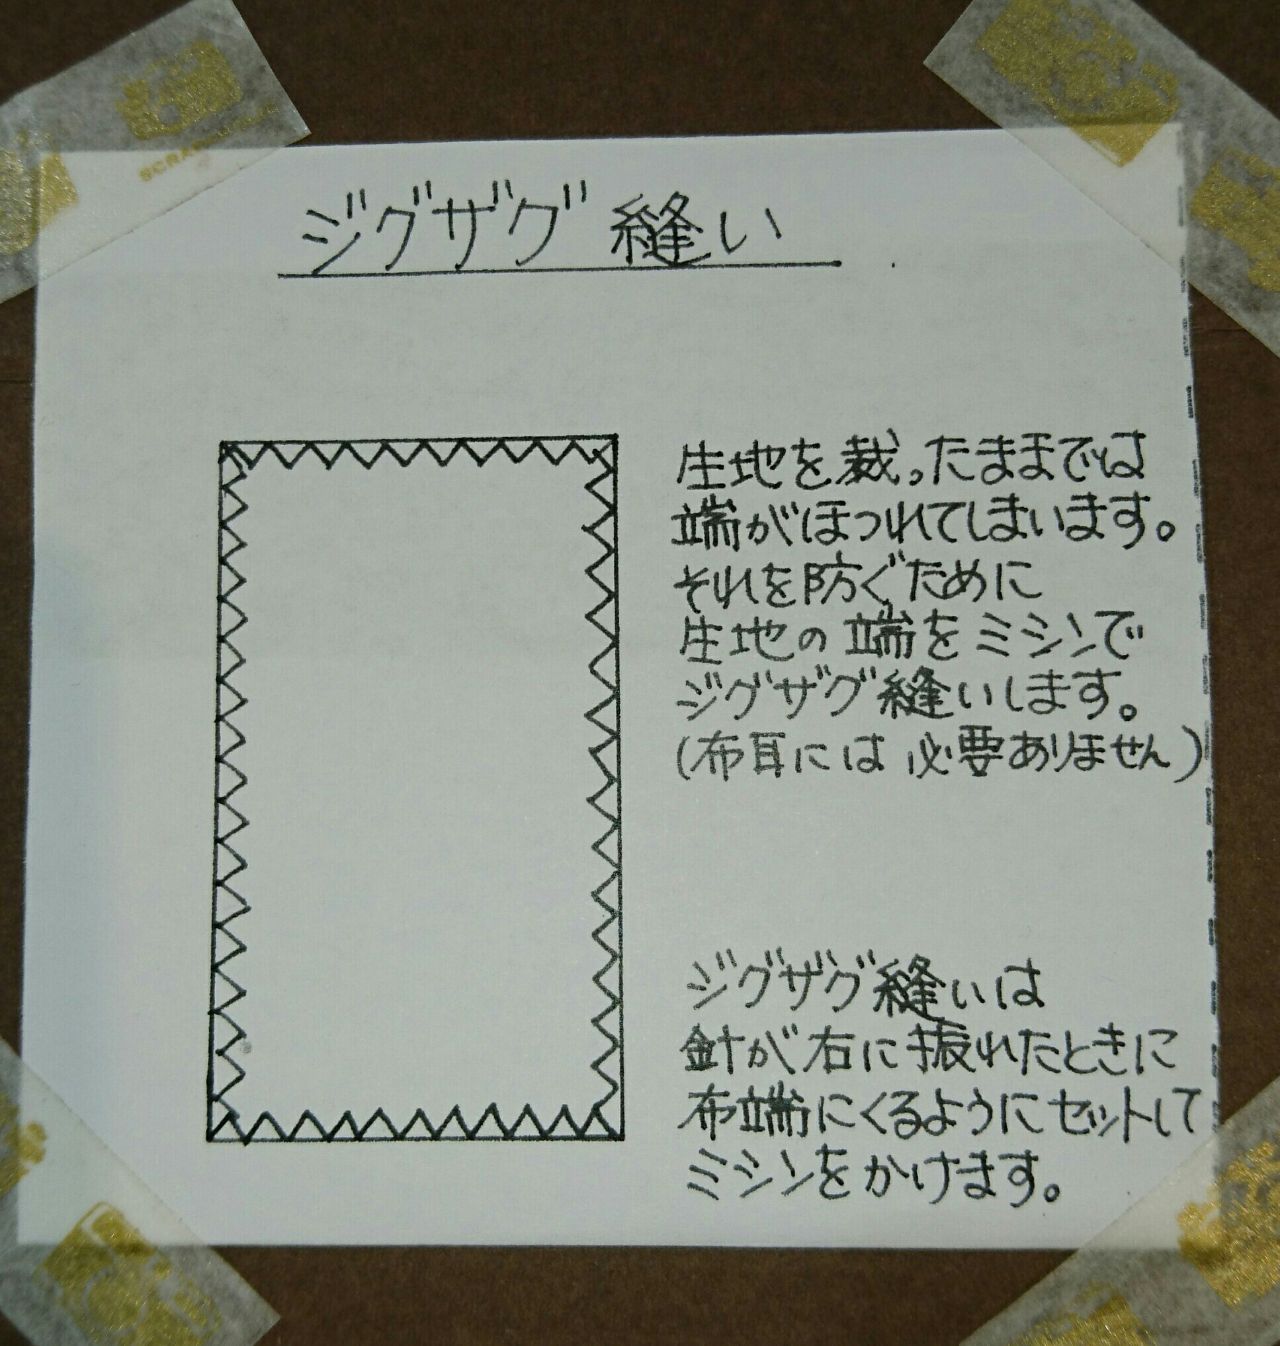 ジグザグ縫い
生地を裁ったままでは
端がほつれてしまいます。
それを防ぐために
生地の端をミシンで
ジグザグ縫いします。
(布耳には必要ありません)
ジグザグ縫いは
針が右に振れたときに
布端にくるようにセットして
ミシンをかけます。